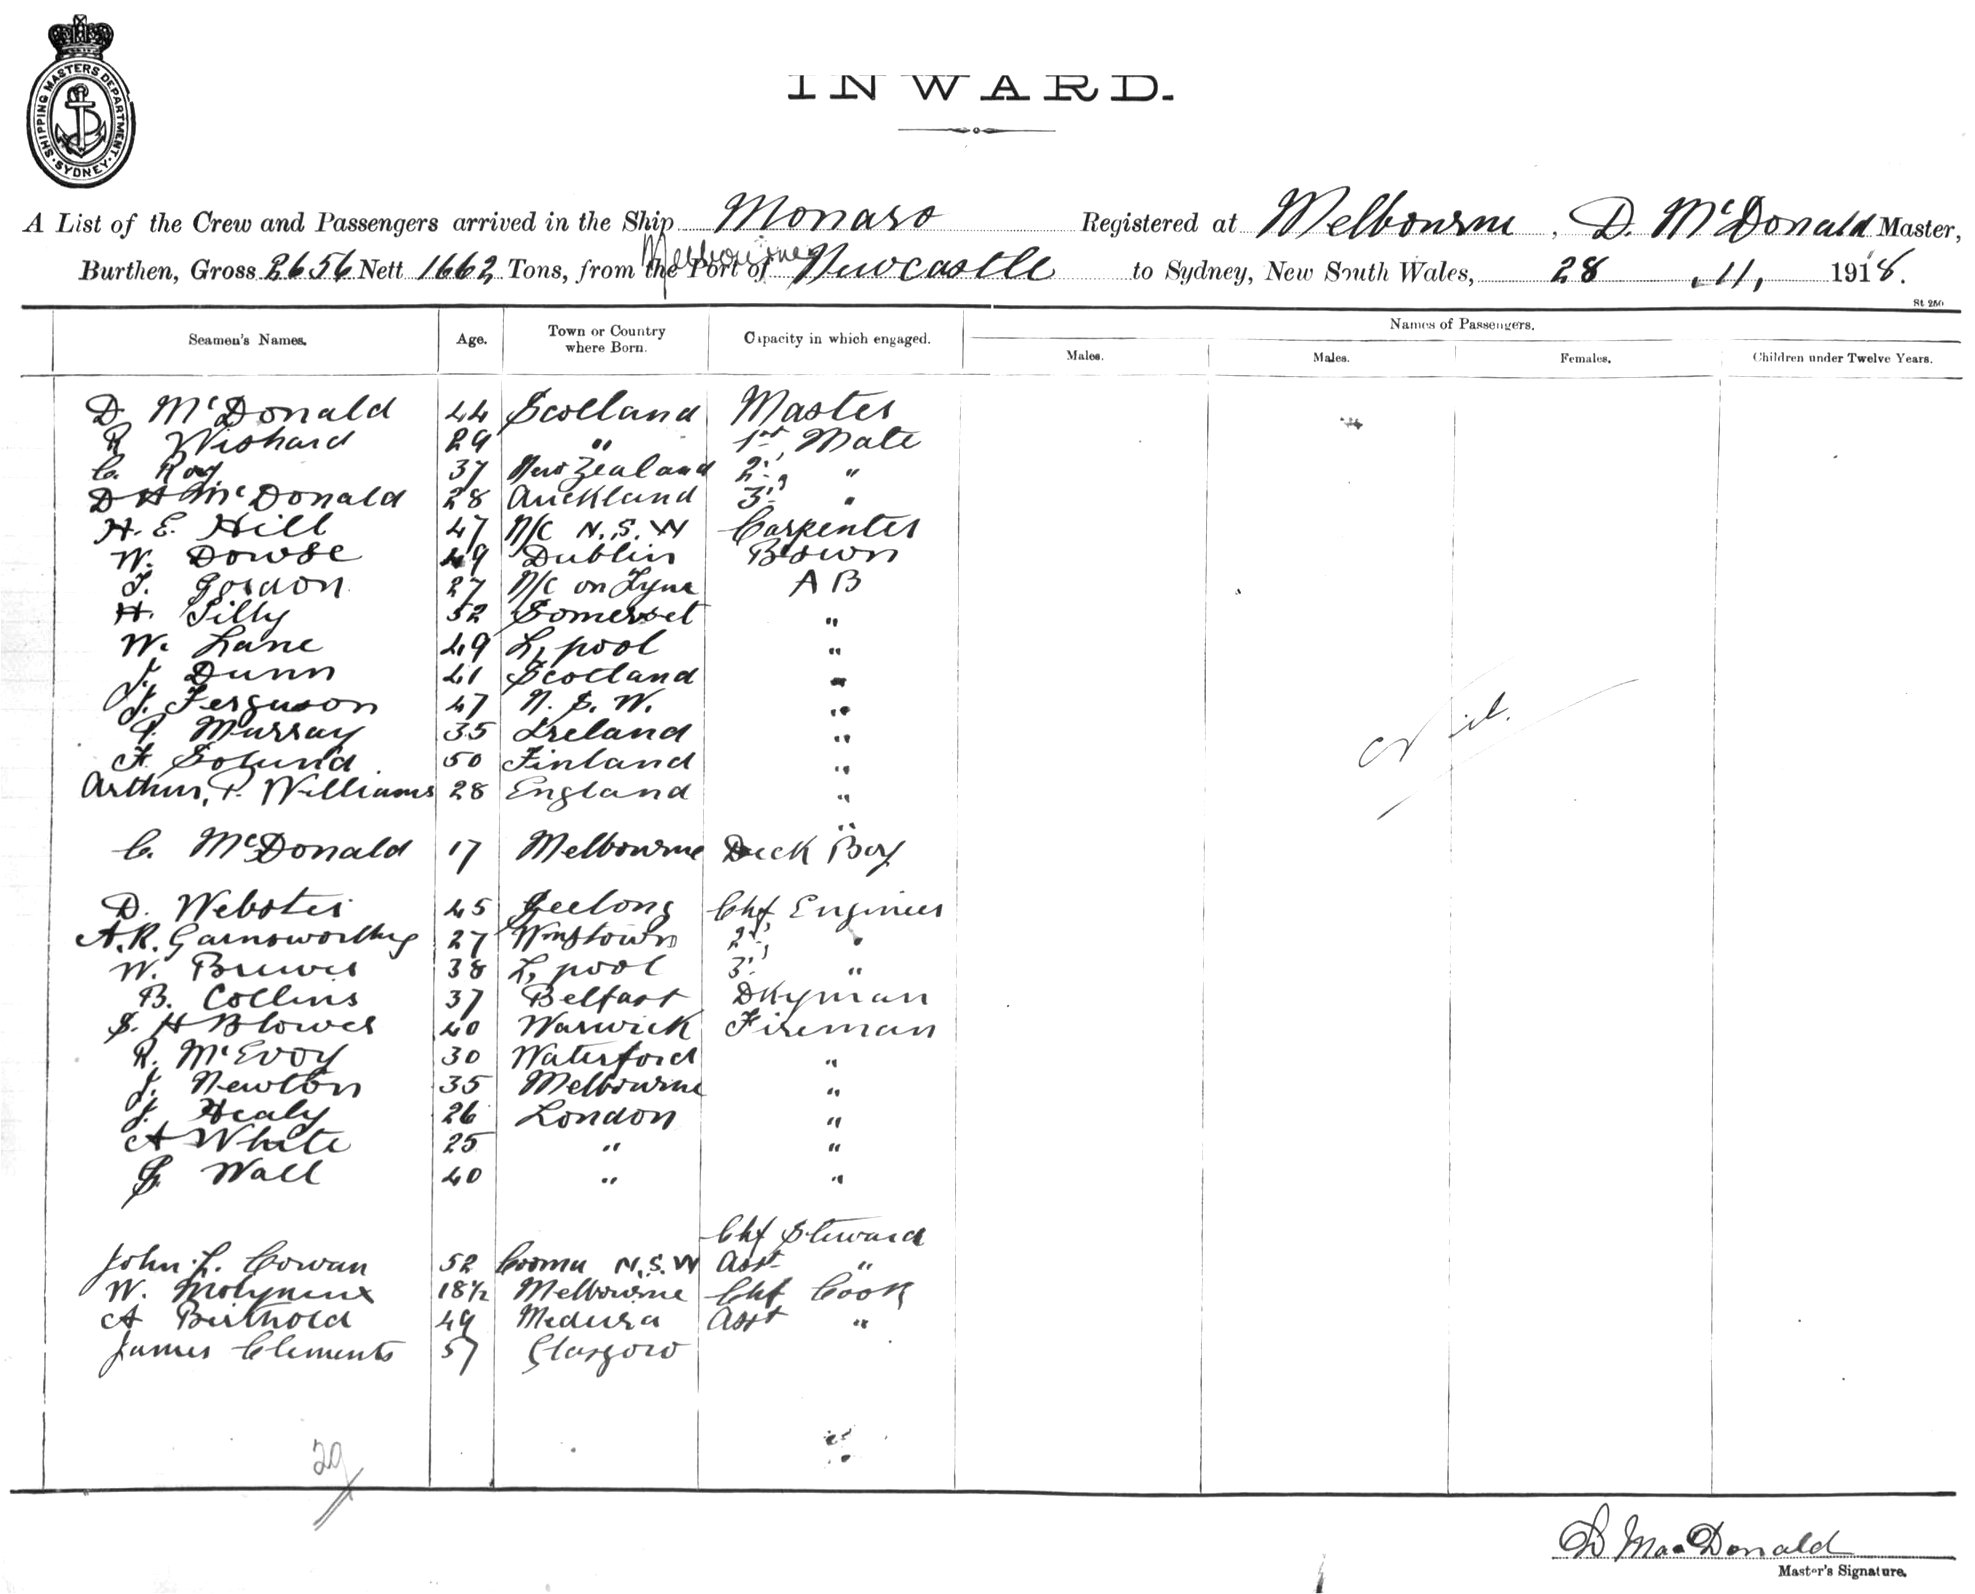 SHIPPING MASTERS DEPARTMENT. SYDNEY.
INWARD.
A List of the Crew and Passengers arrived in the Ship Monaro Registered at Melbourne, D. McDonald Master,
Melbourne
Burthen, Gross 2656 Nett 1662 Tons, from the Port of Newcastle to Sydney, New South Wales, 28 . 11, 1918.
St 250
Seamen's Names. Age. Town or Country where Born. Capacity in which engaged. Names of Passengers.
Males. Males. Females. Children under Twelve Years.
D. McDonald 44 Scotland Master
R Wishard 29 " 1st Mate
C. Roy 37 New Zealand 2nd "
D H McDonald 28 Auckland 3rd "
H. E. Hill 47 N/C N.S.W Carpenter
W. Dowse 49 Dublin Boswn
J. Gordon 27 N/C on Tyne A B
H. Tilly 52 Somerset "
W. Lane 49 L,pool "
J. Dunn 41 Scotland "
J. Ferguson 47 N. S. W. "
P. Murray 35 Ireland "
F. Solund 50 Finland "
Arthur, P. Williams 28 England "
"
C. McDonald 17 Melbourne Deck Boy
Nil.
D. Webster 45 Geelong Chf Engineer
A. R. Garnsworthy 27 Wmstown 2nd "
W. Brewer 38 L,pool 3rd "
B. Collins 37 Belfast Dkyman
S. H Blower 40 Warwick Fireman
R. McEvoy 30 Waterford "
J. Newton 35 Melbourne "
J. Healy 26 London "
A White 25 " "
Wall 40 " "
Chf Steward
John. L. Cowan 52 Cooma N.S.W Asst "
W. Molyneux 18½ Melbourne Chf Cook
A Birthold 49 Asst "
James Clements 57 Glasgow
29
D MacDonald
Master's Signature.